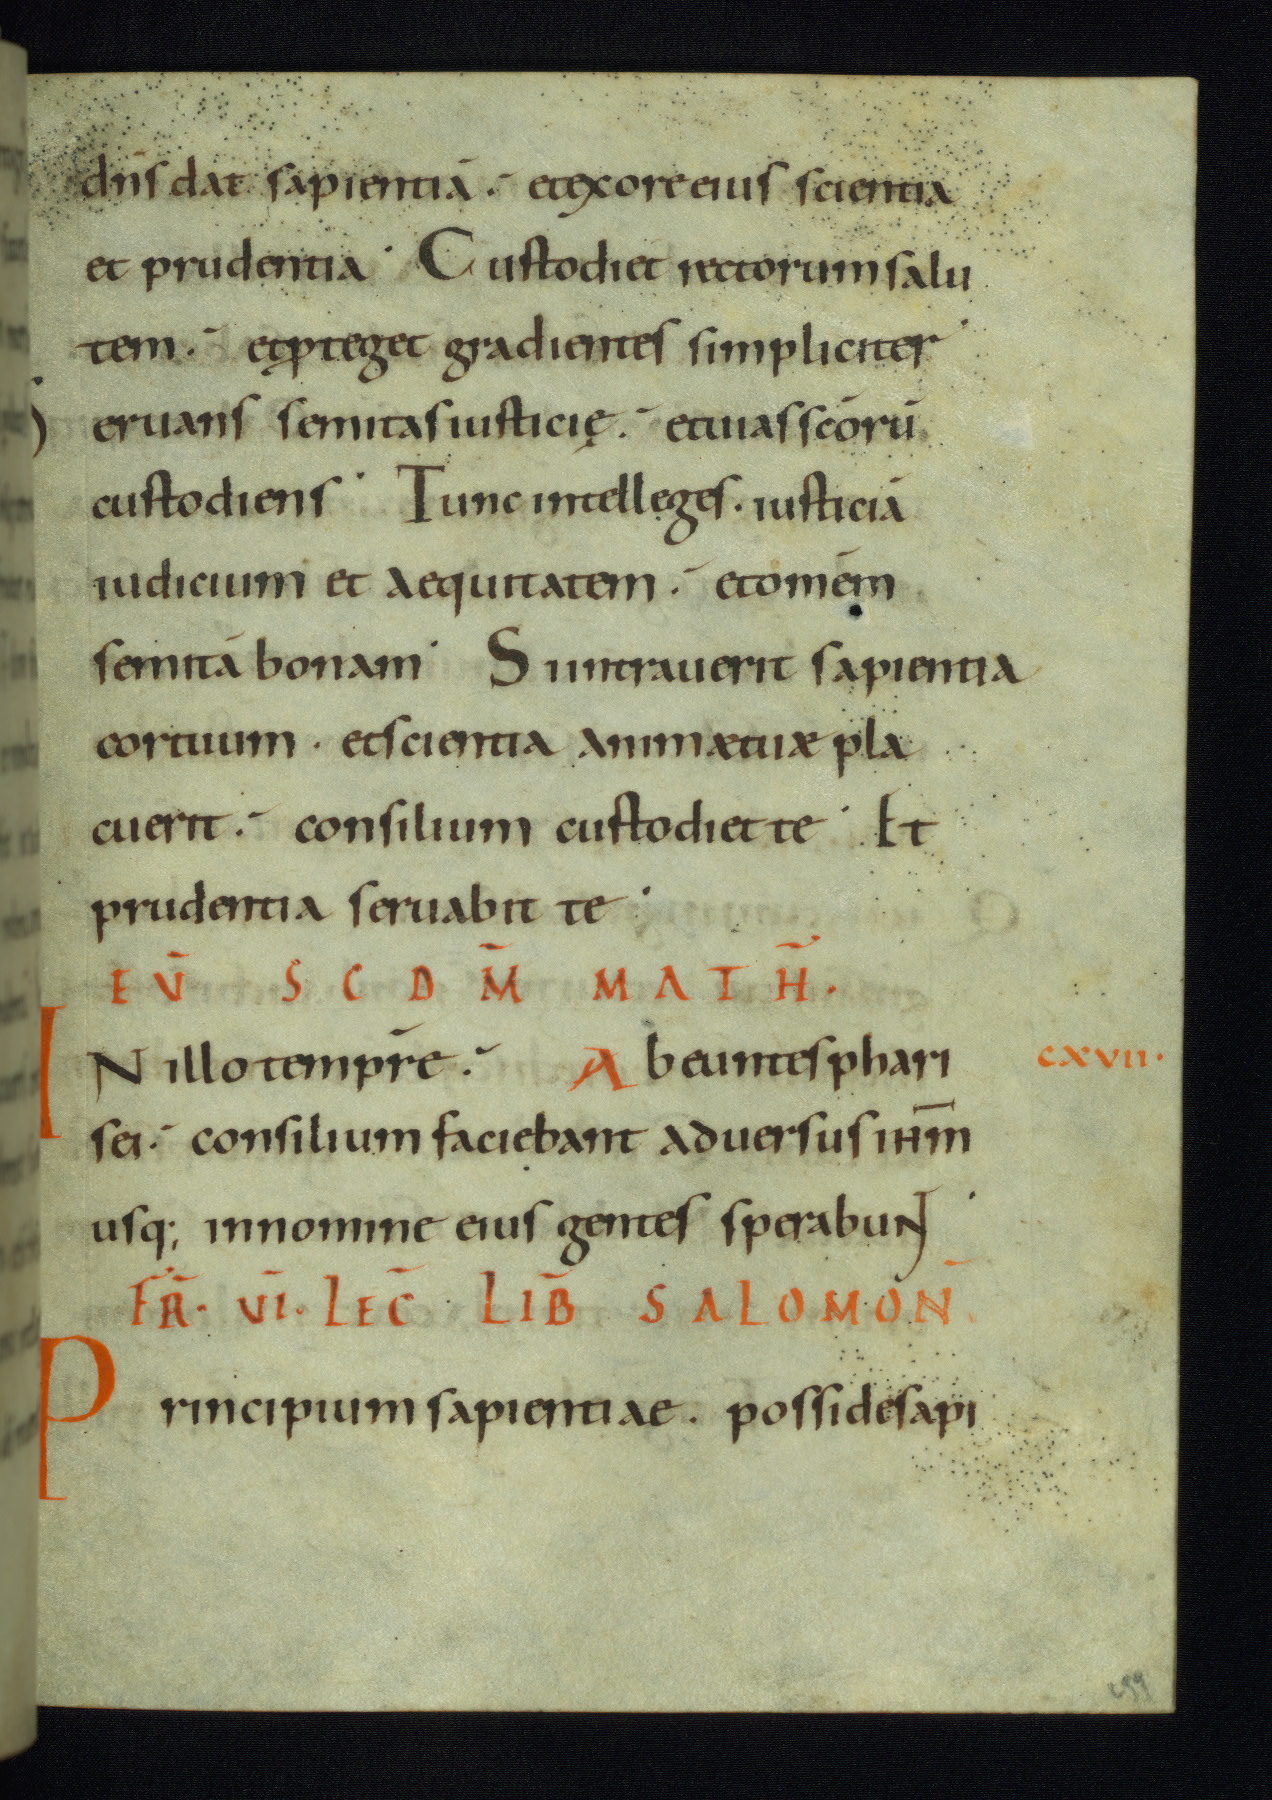 dn̄s dat sapientiā. et ex ore eius scientia
et prudentia. Custodiet rectorum salu
tem. et ꝓteget gradientes simpliciter.
S eruans semitas iusticię. et uias sc̄orū
custodiens. Tunc intelleges. iusticiā
iudicium et aequitatem. et om̄em
semitā bonam. Si intrauerit sapientia
cor tuum. et scientia animæ tuæ pla
cuerit. consilium custodiet te. Et
prudentia seruabit te.
EV̄ SCDM̄ MATH̄.
IN illo tempr̄e. Abeuntes phari CXVII.
sei. consilium faciebant aduersus ih̅m
usq; in nomine eius gentes sperabunt.
FR̄. VI. LEC̄ LIB̄ SALOMON̄.
Principium sapientiae. posside sapi